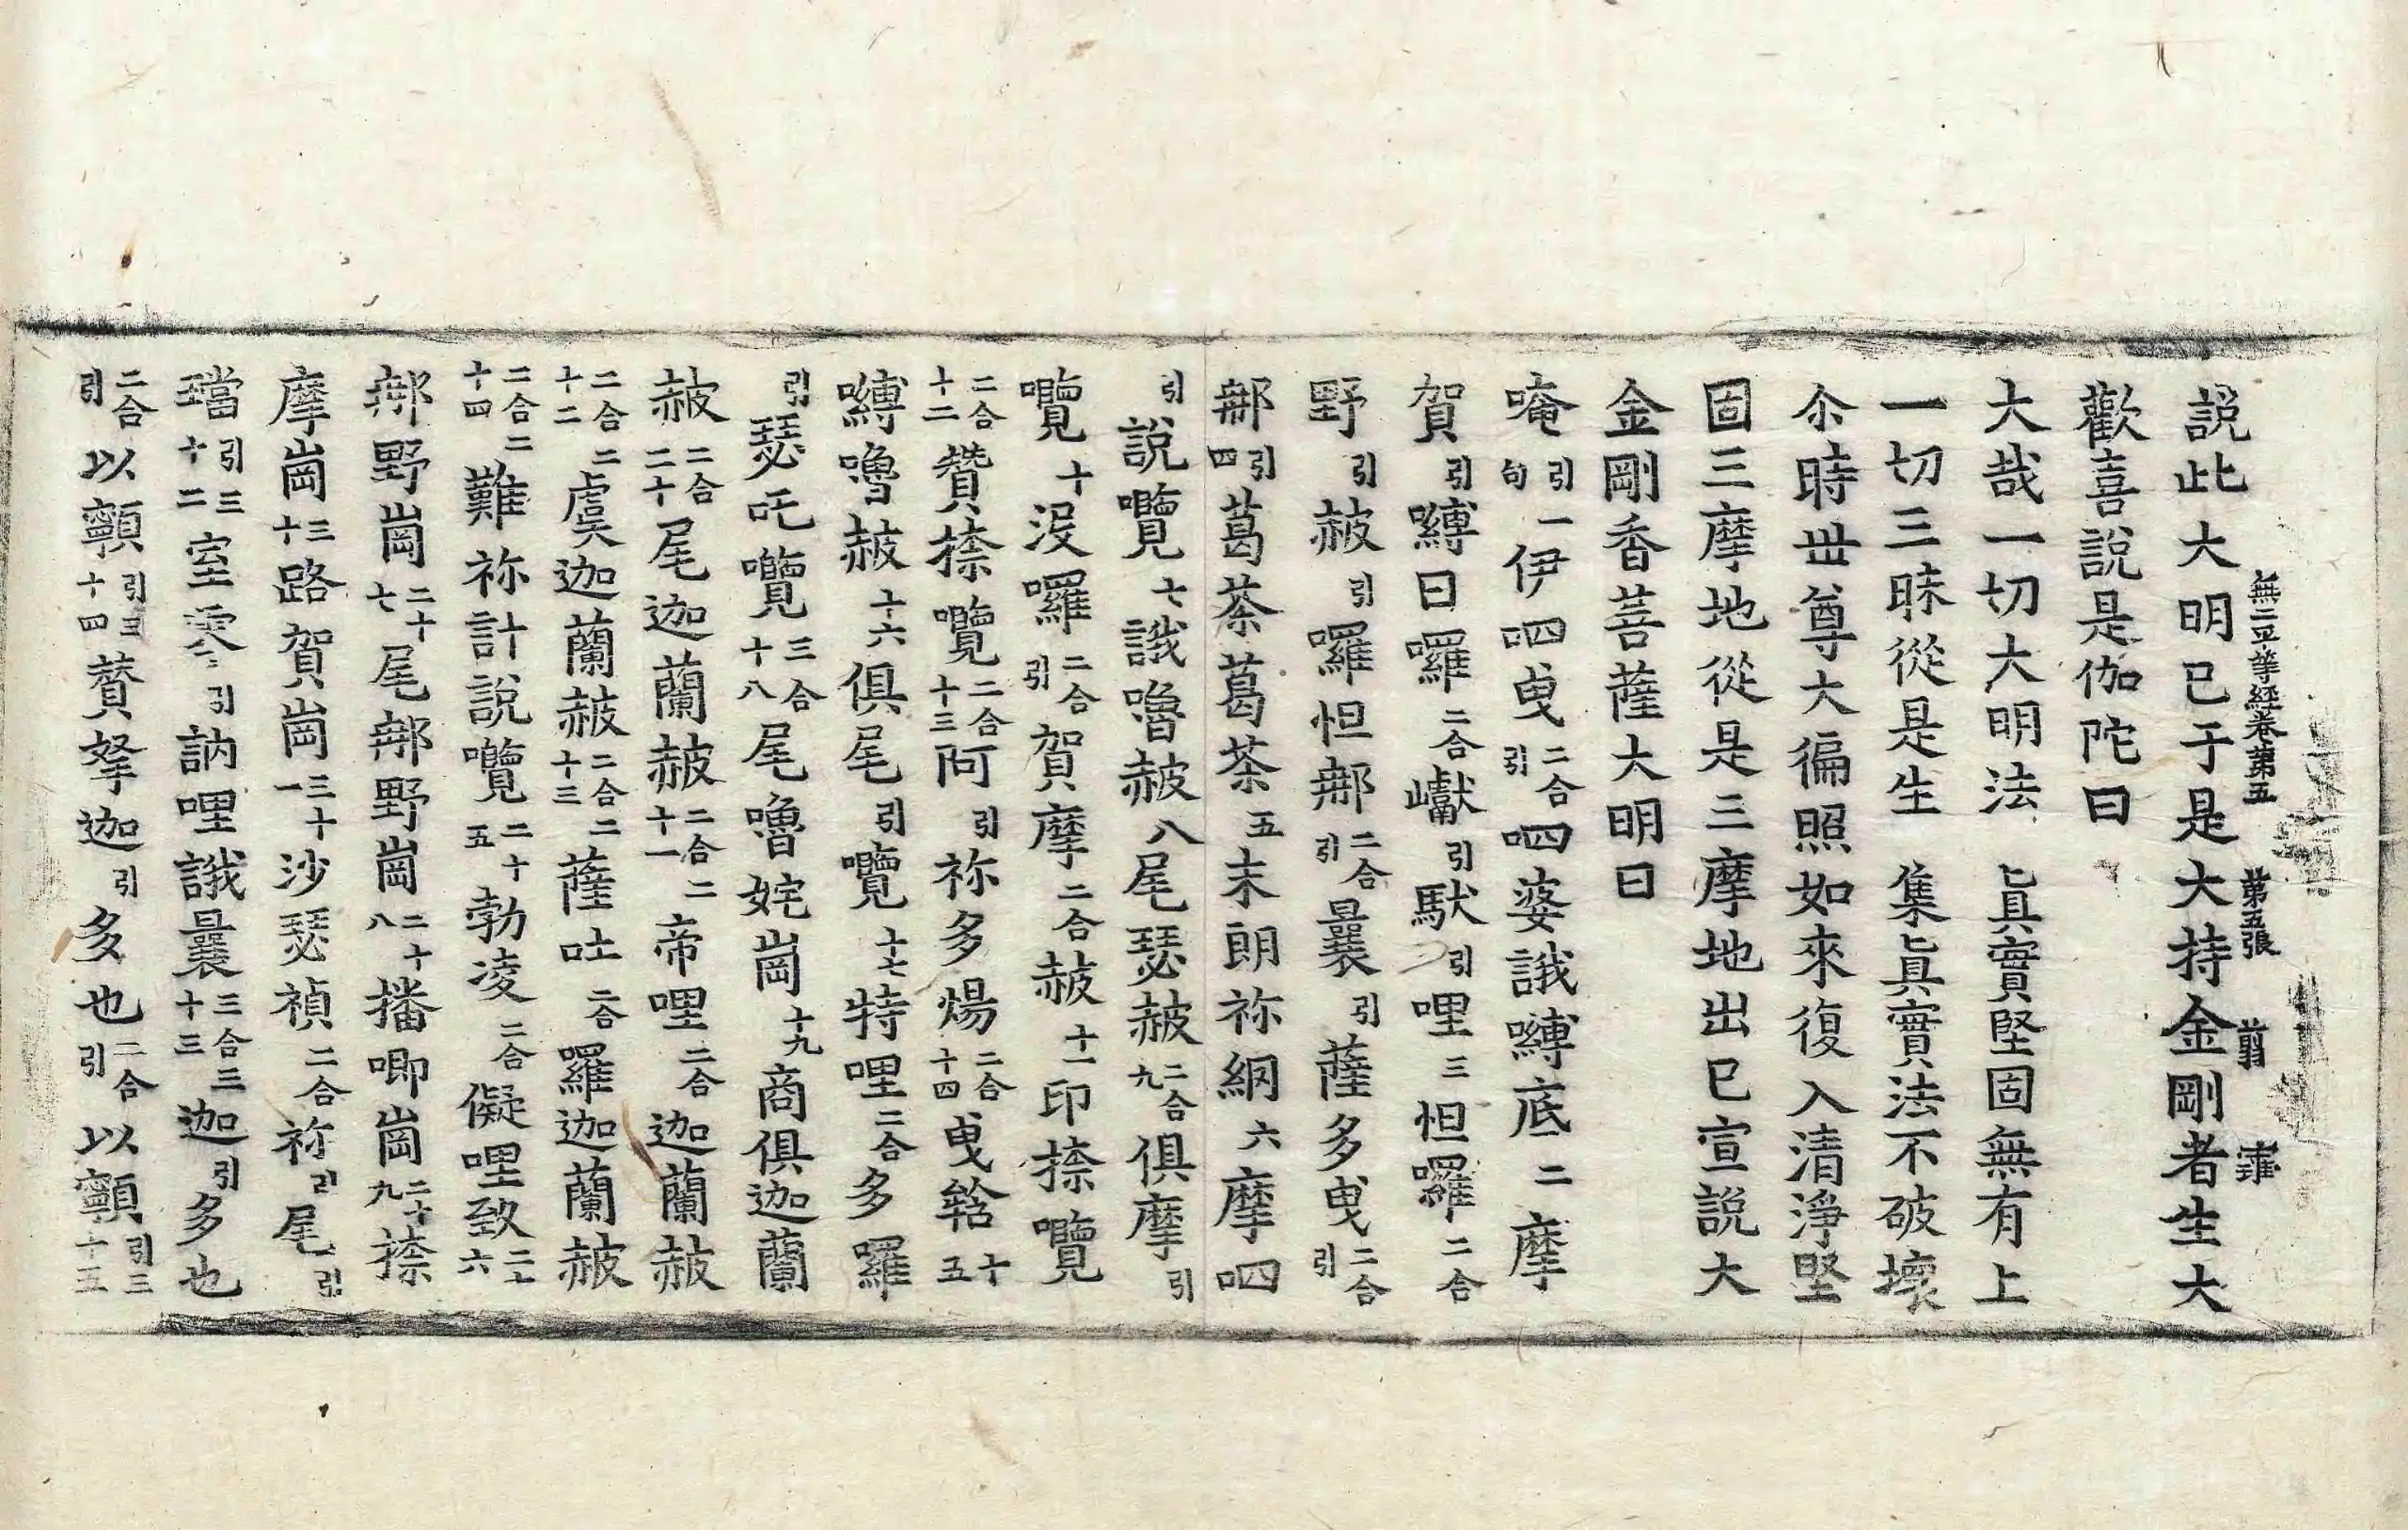 無二平等經卷第五 第五張 翦
說此大明已于是大持金剛者生大
歡喜說是伽陀曰
大哉一切大明法 眞實堅固無有上
一切三昧從是生 集眞實法不破壞
尒時世尊大徧照如來復入清淨堅
固三摩地從是三摩地出已宣說大
金剛香菩薩大明曰
唵引一句伊呬曳二合引呬婆誐嚩底二摩
賀引嚩日囉二合巘引馱引哩三怛囉二合
野引赧引囉怛那二合引曩引薩多曳二合引
那引四葛茶葛茶五末朗祢網六摩呬
引說囕七誐嚕赧八尾瑟赧二合九俱摩引
囕十沒囉二合引賀摩二合赧十一印捺囕
二合十二贊捺囕二合十三阿引祢多煬二合十四曳䇶十五
嚩嚕赧十六俱尾引囕十七特哩二合多羅
引瑟吒囕三合十八尾嚕姹崗十九商俱迦蘭
赧二合二十尾迦蘭赧二合二十一帝哩二合迦蘭赧
二合二十二虞迦蘭赧二合二十三薩吐二合羅迦蘭赧
二合二十四難祢計說囕二十五勃凌二合儗哩致二十六
那野崗二十七尾那野崗二十八播唧崗二十九捺
摩崗三十路賀崗三十一沙瑟禎二合祢引尾引
璫引三十二室引訥哩誐曩三合三十三迦引多也
二合引以顫引三十四贊拏迦引多也二合引以顫引三十五